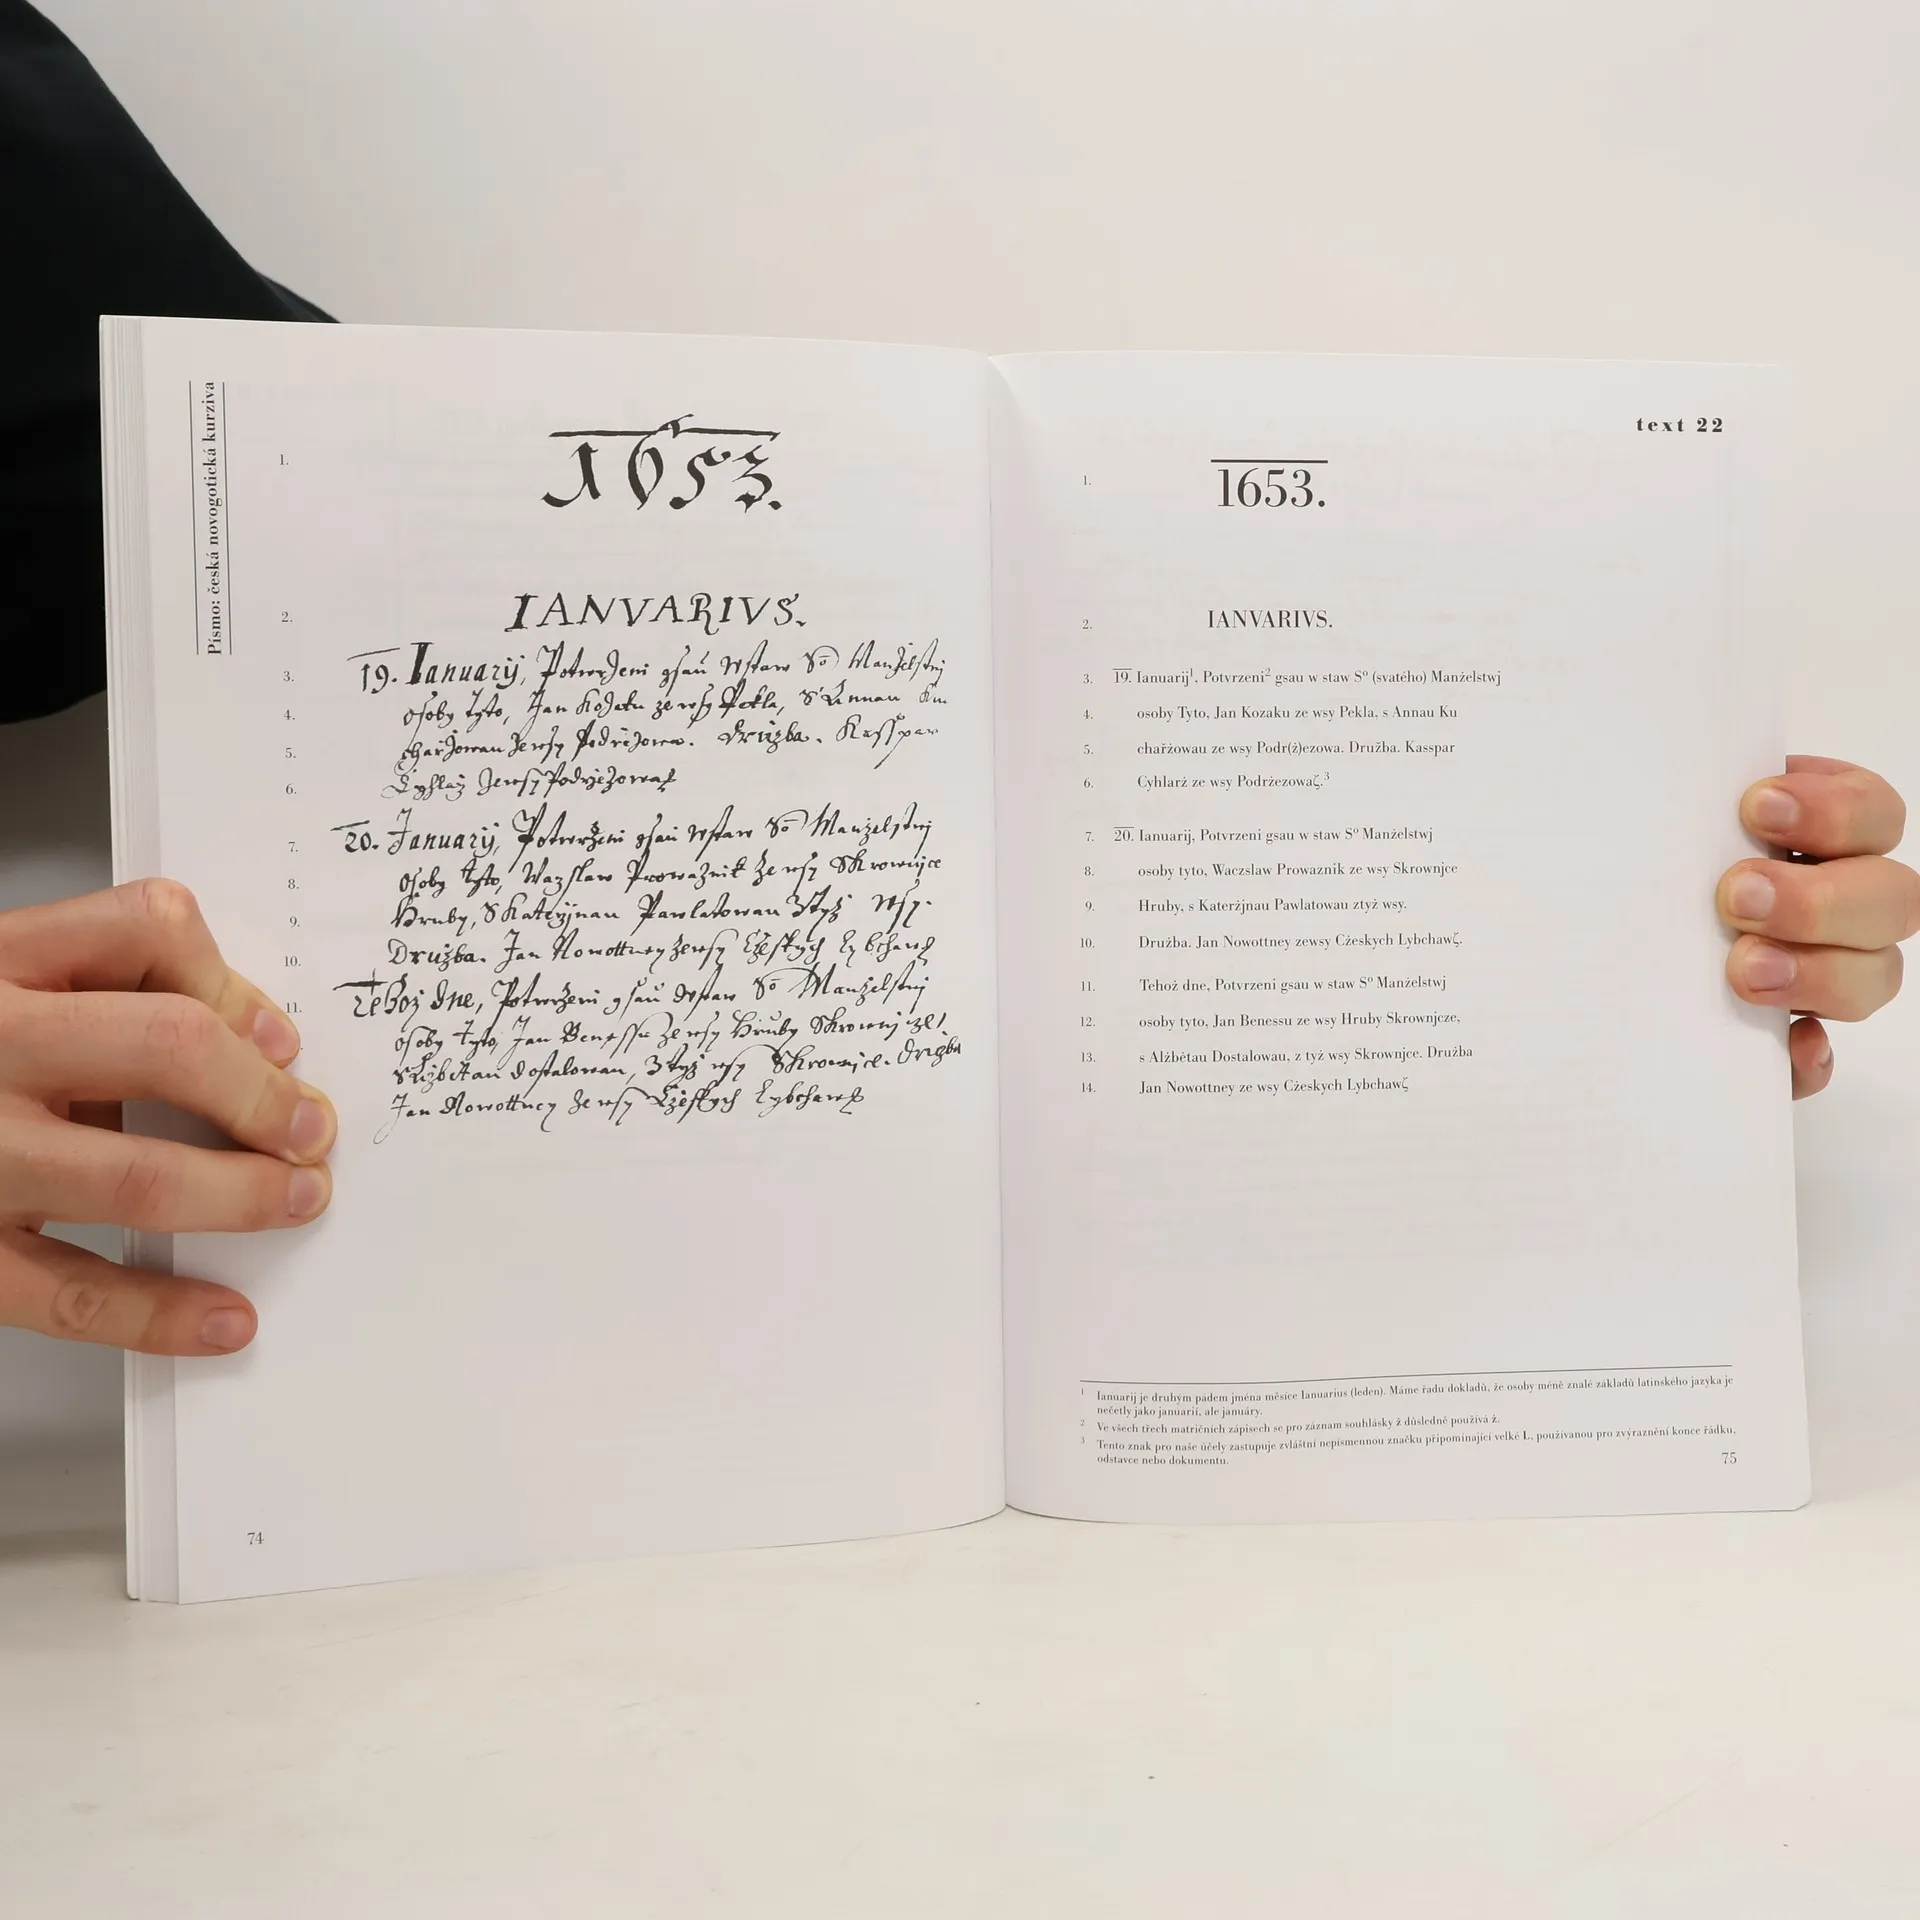 Písmo: česká novogotická kurziva
1.
1653.
2.
IANVARIVS.
3.
19. Ianuarij, Potwrzeni gsau w staw So Manżelstwj
4.
osoby tyto, Jan Kozaku ze wsy Pekla, s Annau Ku
5.
charżowau ze wsy Podrżezowa. Drużba. Kasspar
6.
Cyhlarż ze wsy Podrżezowa
7.
20. Januarij, Potwrzeni gsau w staw So Manżelstwj
8.
osoby tyto, Waczslaw Prowaznik ze wsy Skrownjce
9.
Hruby, s Katerżjnau Pawlatowau ztyż wsy.
10.
Drużba. Jan Nowottney ze wsy Cżeskych Lybchaw
11.
Tehoż dne, Potwrzeni gsau w staw So Manżelstwj
osoby tyto, Jan Benessu ze wsy Hruby Skrownjcze,
s Alżbětau Dostalowau, z tyż wsy Skrownjce. Drużba
Jan Nowottney ze wsy Cżeskych Lybchaw
74
text 22
1.
1653.
2.
IANVARIVS.
3. 19. Ianuarij¹, Potvrzeni² gsau w staw Sº (svatého) Manżelstwj
4. osoby Tyto, Jan Kozaku ze wsy Pekla, s Annau Ku
5. chařżowau ze wsy Podr(ż)ezowa. Družba. Kasspar
6. Cyhlarż ze wsy Podrżezowaζ.³
7. 20. Ianuarij, Potvrzeni gsau w staw Sº Manżelstwj
8. osoby tyto, Waczslaw Prowaznik ze wsy Skrownjce
9. Hruby, s Kateržjnau Pawlatowau ztyż wsy.
10. Družba. Jan Nowottney zewsy Cżeskych Lybchawζ.
11. Tehoż dne, Potvrzeni gsau w staw Sº Manżelstwj
12. osoby tyto, Jan Benessu ze wsy Hruby Skrownjcze,
13. s Alżbětau Dostalowau, z tyż wsy Skrownjce. Družba
14. Jan Nowottney ze wsy Cżeskych Lybchawζ
1 Ianuarij je druhým pádem jména měsíce Ianuarius (leden). Máme řadu dokladů, že osoby méně znalé základů latinského jazyka je
nečetly jako januarií, ale januáry.
2 Ve všech třech matričních zápisech se pro záznam souhlásky ž důsledně používá ż.
3 Tento znak pro naše účely zastupuje zvláštní nepísmennou značku připomínající velké L, používanou pro zvýraznění konce řádku,
odstavce nebo dokumentu.
75